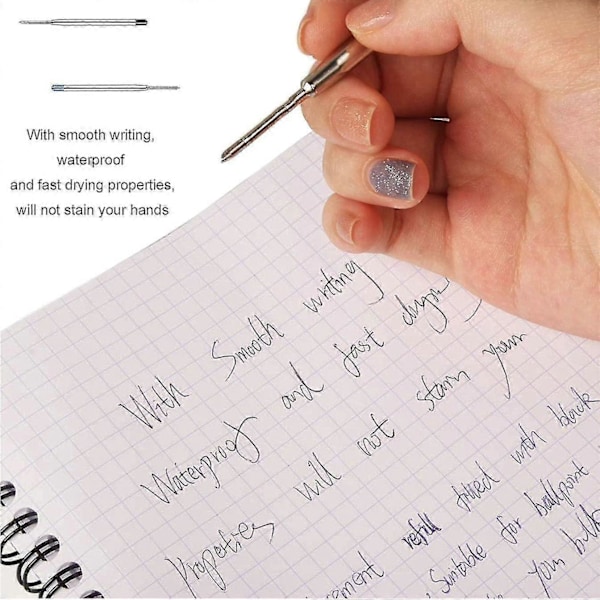 With smooth writing,
waterproof
and fast drying properties,
will not stain your hands
With Smooth writing
Waterproof and fast drying
Properties will not stain your
refill filled with black
, Suitable for ballpoint
your